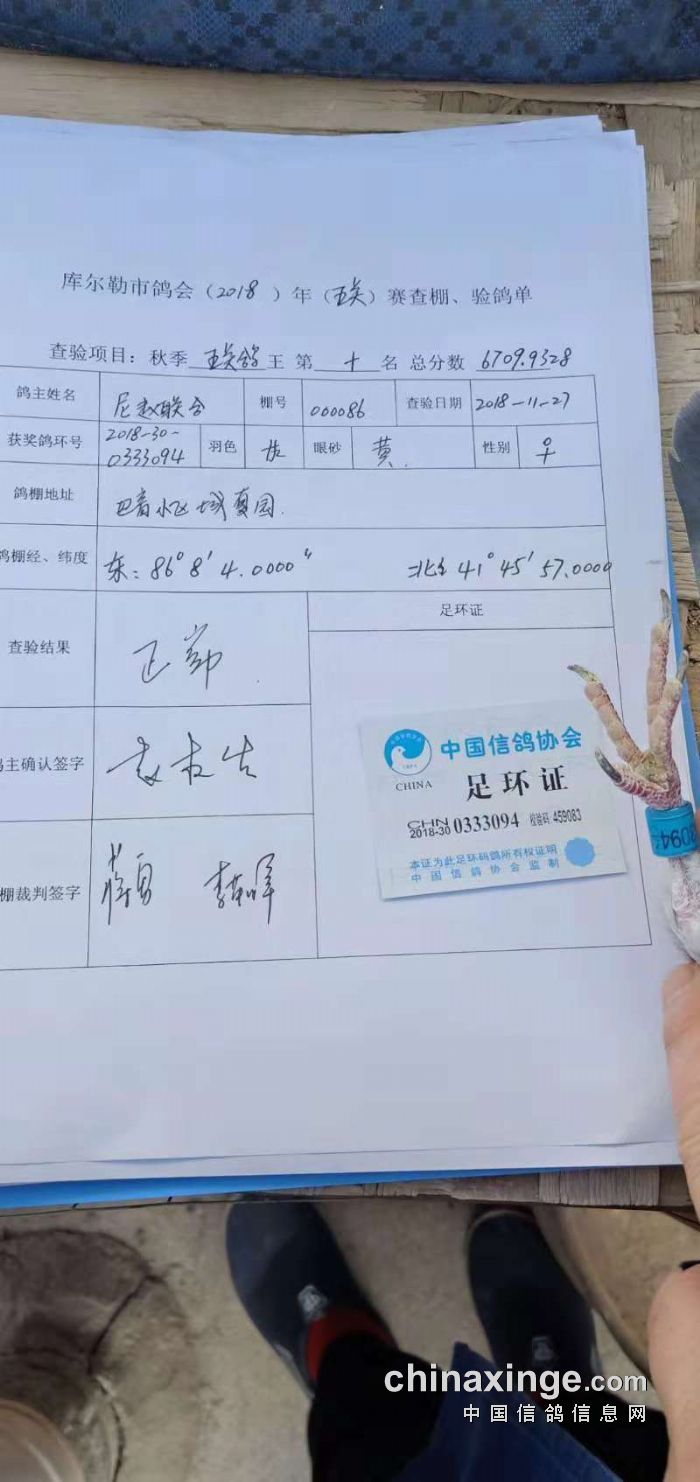 库尔勒市鸽会（2018 ）年（五关）赛查棚、验鸽单
查验项目：秋季 五关鸽 王 第 十 名 总分数 6709.9328
鸽主姓名 尼赵联合 棚号 000086 查验日期 2018-11-27
获奖鸽环号 2018-30-0333094 羽色 灰 眼砂 黄. 性别 ♀
鸽棚地址 巴音小区 园.
鸽棚经、纬度 东：86°8′4.0000" 北：41°45′57.0000
查验结果 正常. 足环证
鸽主确认签字
棚裁判签字 蒋勇
中国信鸽协会
CHINA 足环证
CHN
2018-30 0333094 校验码 459083
本证为此足环码鸽所有权证明
中国信鸽协会监制
3094
chinaxinge.com
中国信鸽信息网